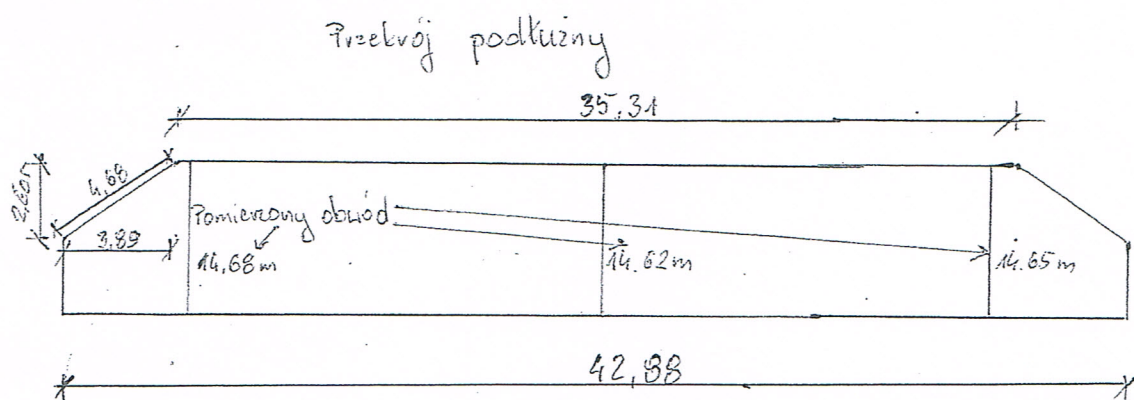 Przekrój podłużny
35.31
4,68
2,605
3,89
Pomierzony obwód
14,68m
14.62m
14.65m
42,88